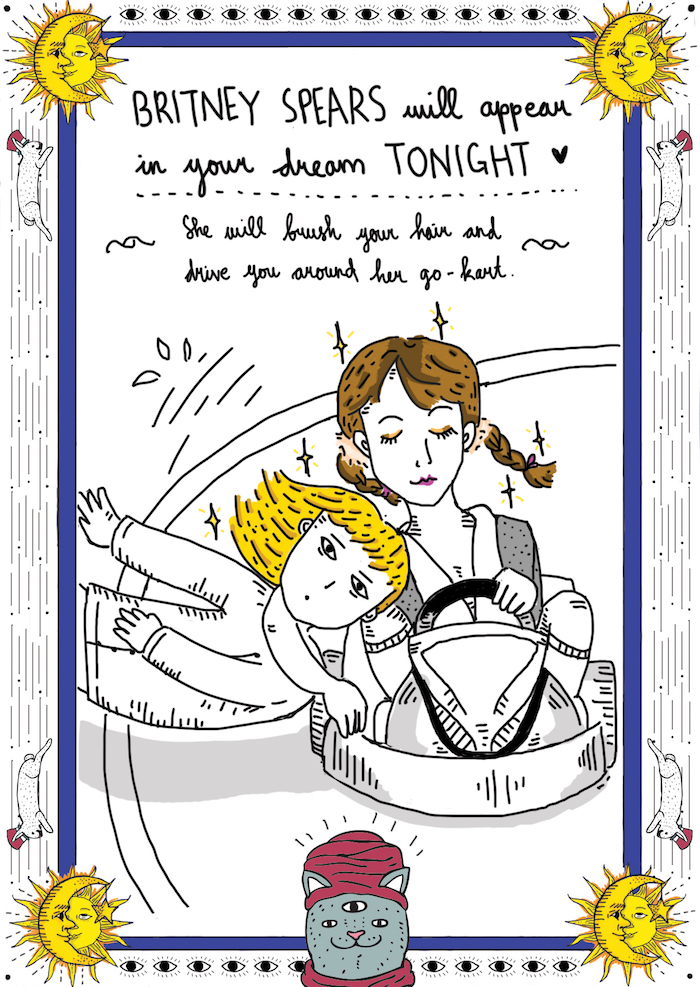 BRITNEY SPEARS will appear
in your dream TONIGHT ♥
She will brush your hair and
drive you around her go-kart.